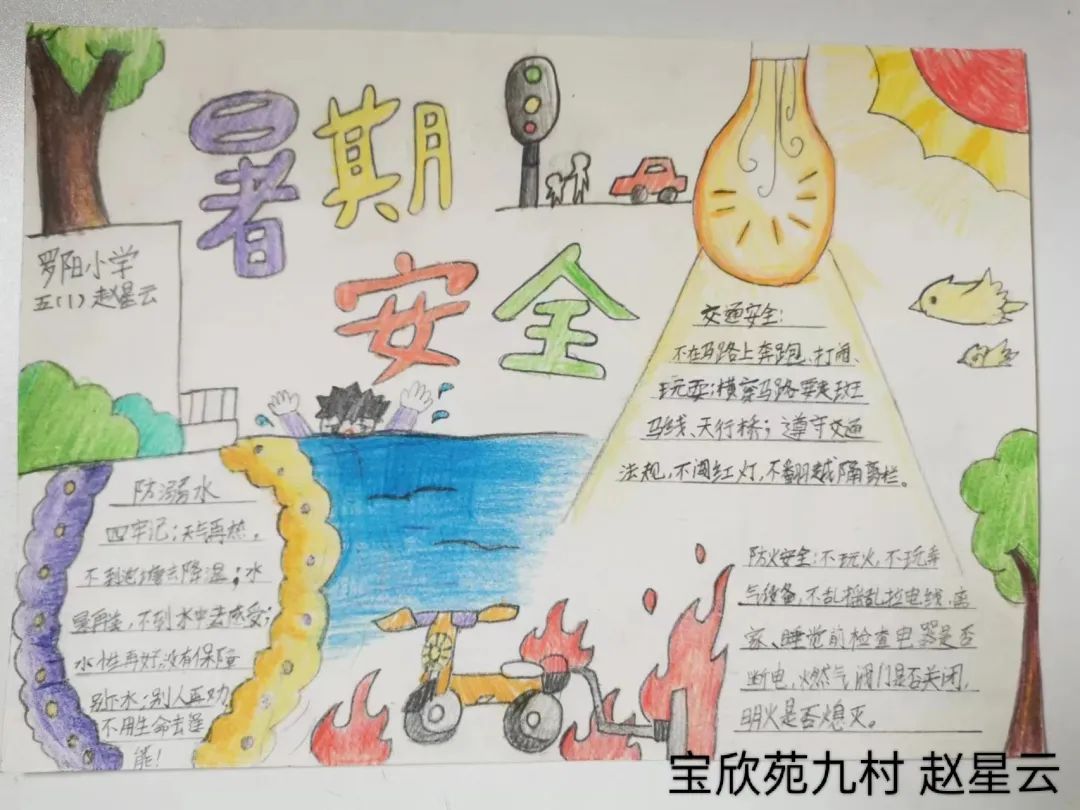 暑期
安全
罗阳小学
五(1)赵星云
交通安全:
不在马路上奔跑、打闹、
玩耍;横穿马路要走斑
马线、天行桥;遵守交通
法规,不闯红灯,不翻越隔离栏。
防溺水
四牢记:天气再热,
不到池塘去降温;水
再 ,不到水中去感受;
水性再好,没有保险
别下水;别人再劝
不用生命去逞
能!
防火安全:不玩火,不玩弄
气设备,不乱 乱拉电线,离
家、睡觉前检查电器是否
断电,燃气阀门是否关闭,
明火是否熄灭。
宝欣苑九村 赵星云